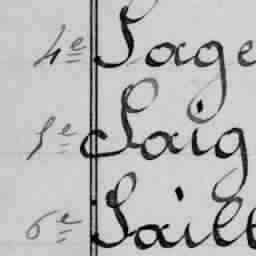 4e Sage
5e Saig
6e Saill